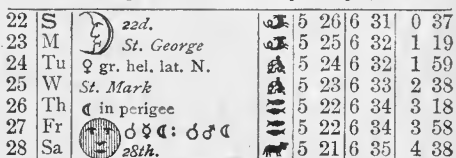 22 S 22d. ♑ 5 26 6 31 0 37
23 M St. George ♑ 5 25 6 32 1 19
24 Tu ♀ gr. hel. lat. N. ♒ 5 24 6 32 1 59
25 W St. Mark ♒ 5 23 6 33 2 38
26 Th ☾ in perigee ♓ 5 22 6 34 3 18
27 Fr ☌☿☾: ☌♂☾ ♓ 5 22 6 34 3 58
28 Sa 28th. ♈ 5 21 6 35 4 38